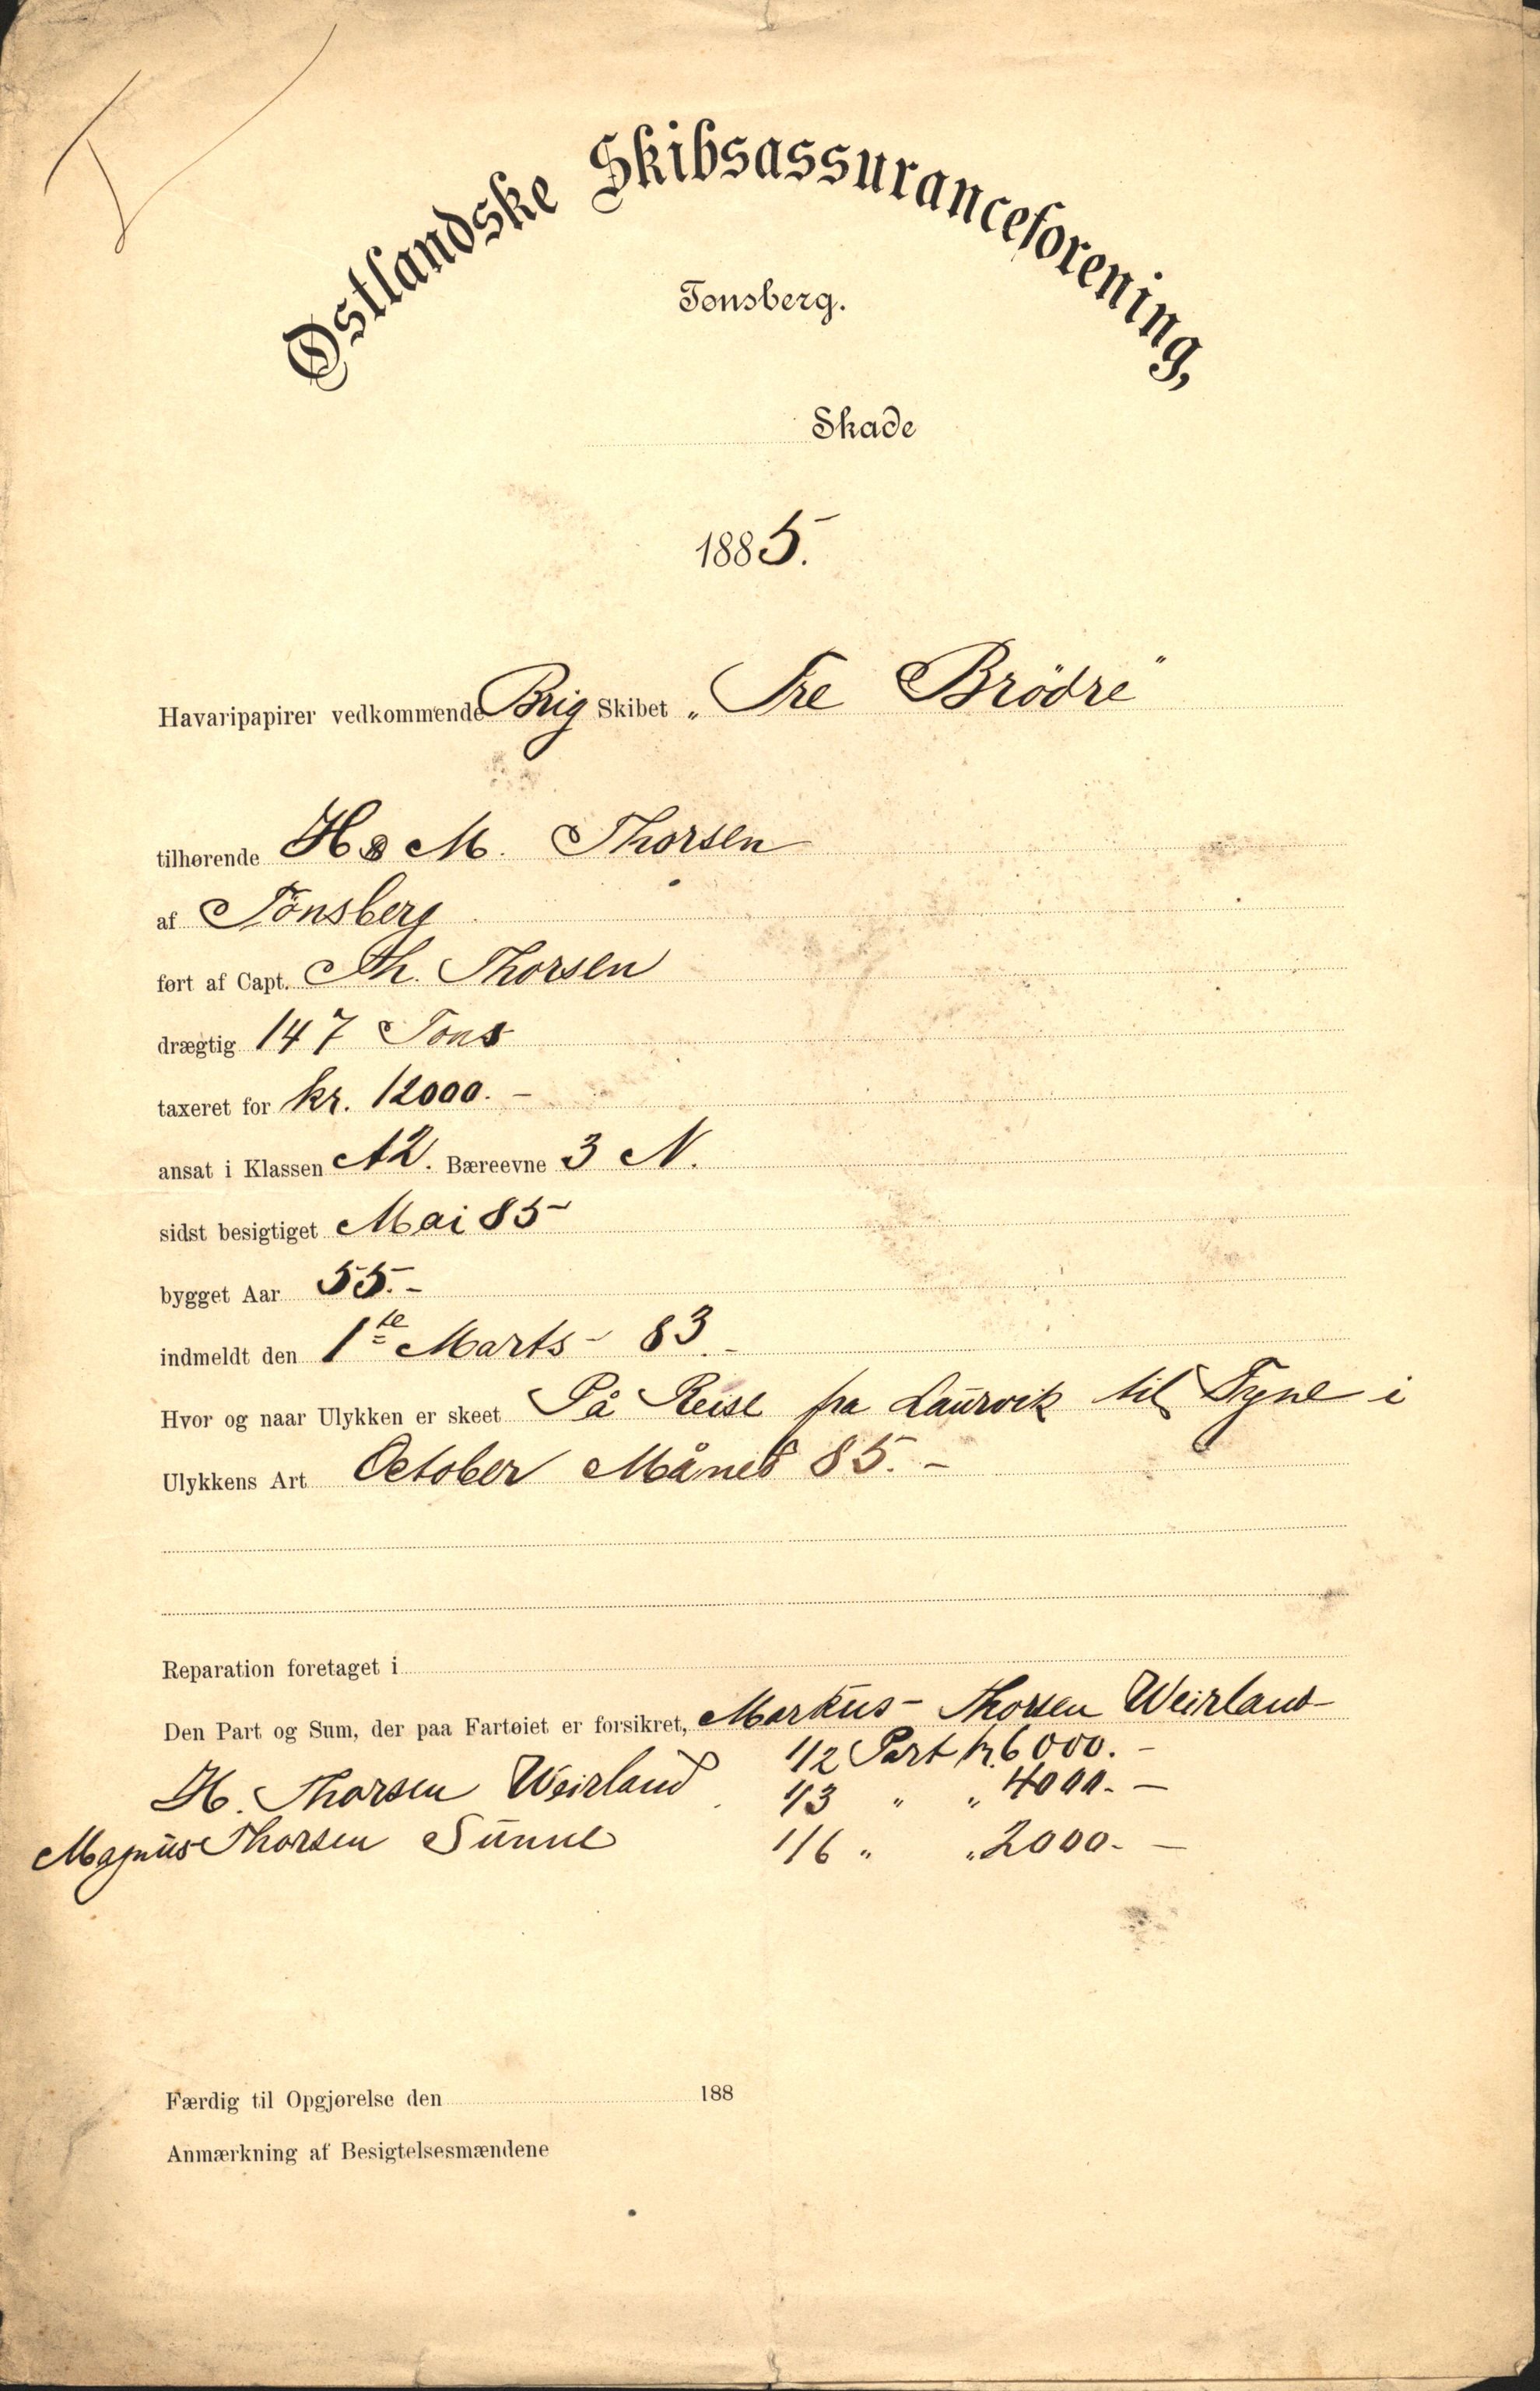 Østlandske Skibsassuranceforening,
Tønsberg.
Skade
1885.
Havaripapirer vedkommende Brig Skibet „Tre Brödre"
tilhørende H & M. Thorsen
af Tönsberg
ført af Capt. Th. Thorsen
drægtig 147 Tons
taxeret for kr. 12000. –
ansat i Klassen A2. Bæreevne 3 N.
sidst besigtiget Mai 85
bygget Aar 55. –
indmeldt den 1ste Marts 83. –
Hvor og naar Ulykken er skeet På Reise fra Laurvik til Tyne i
Ulykkens Art October Måned 85. –
Reparation foretaget i
Den Part og Sum, der paa Fartøiet er forsikret, Markus Thorsen Weirland
1/2 Part kr. 6000. –
H. Thorsen Weirland 1/3 " " 4000. –
Magnus Thorsen Sunne 1/6 " " 2000. –
Færdig til Opgjørelse den 188
Anmærkning af Besigtelsesmændene